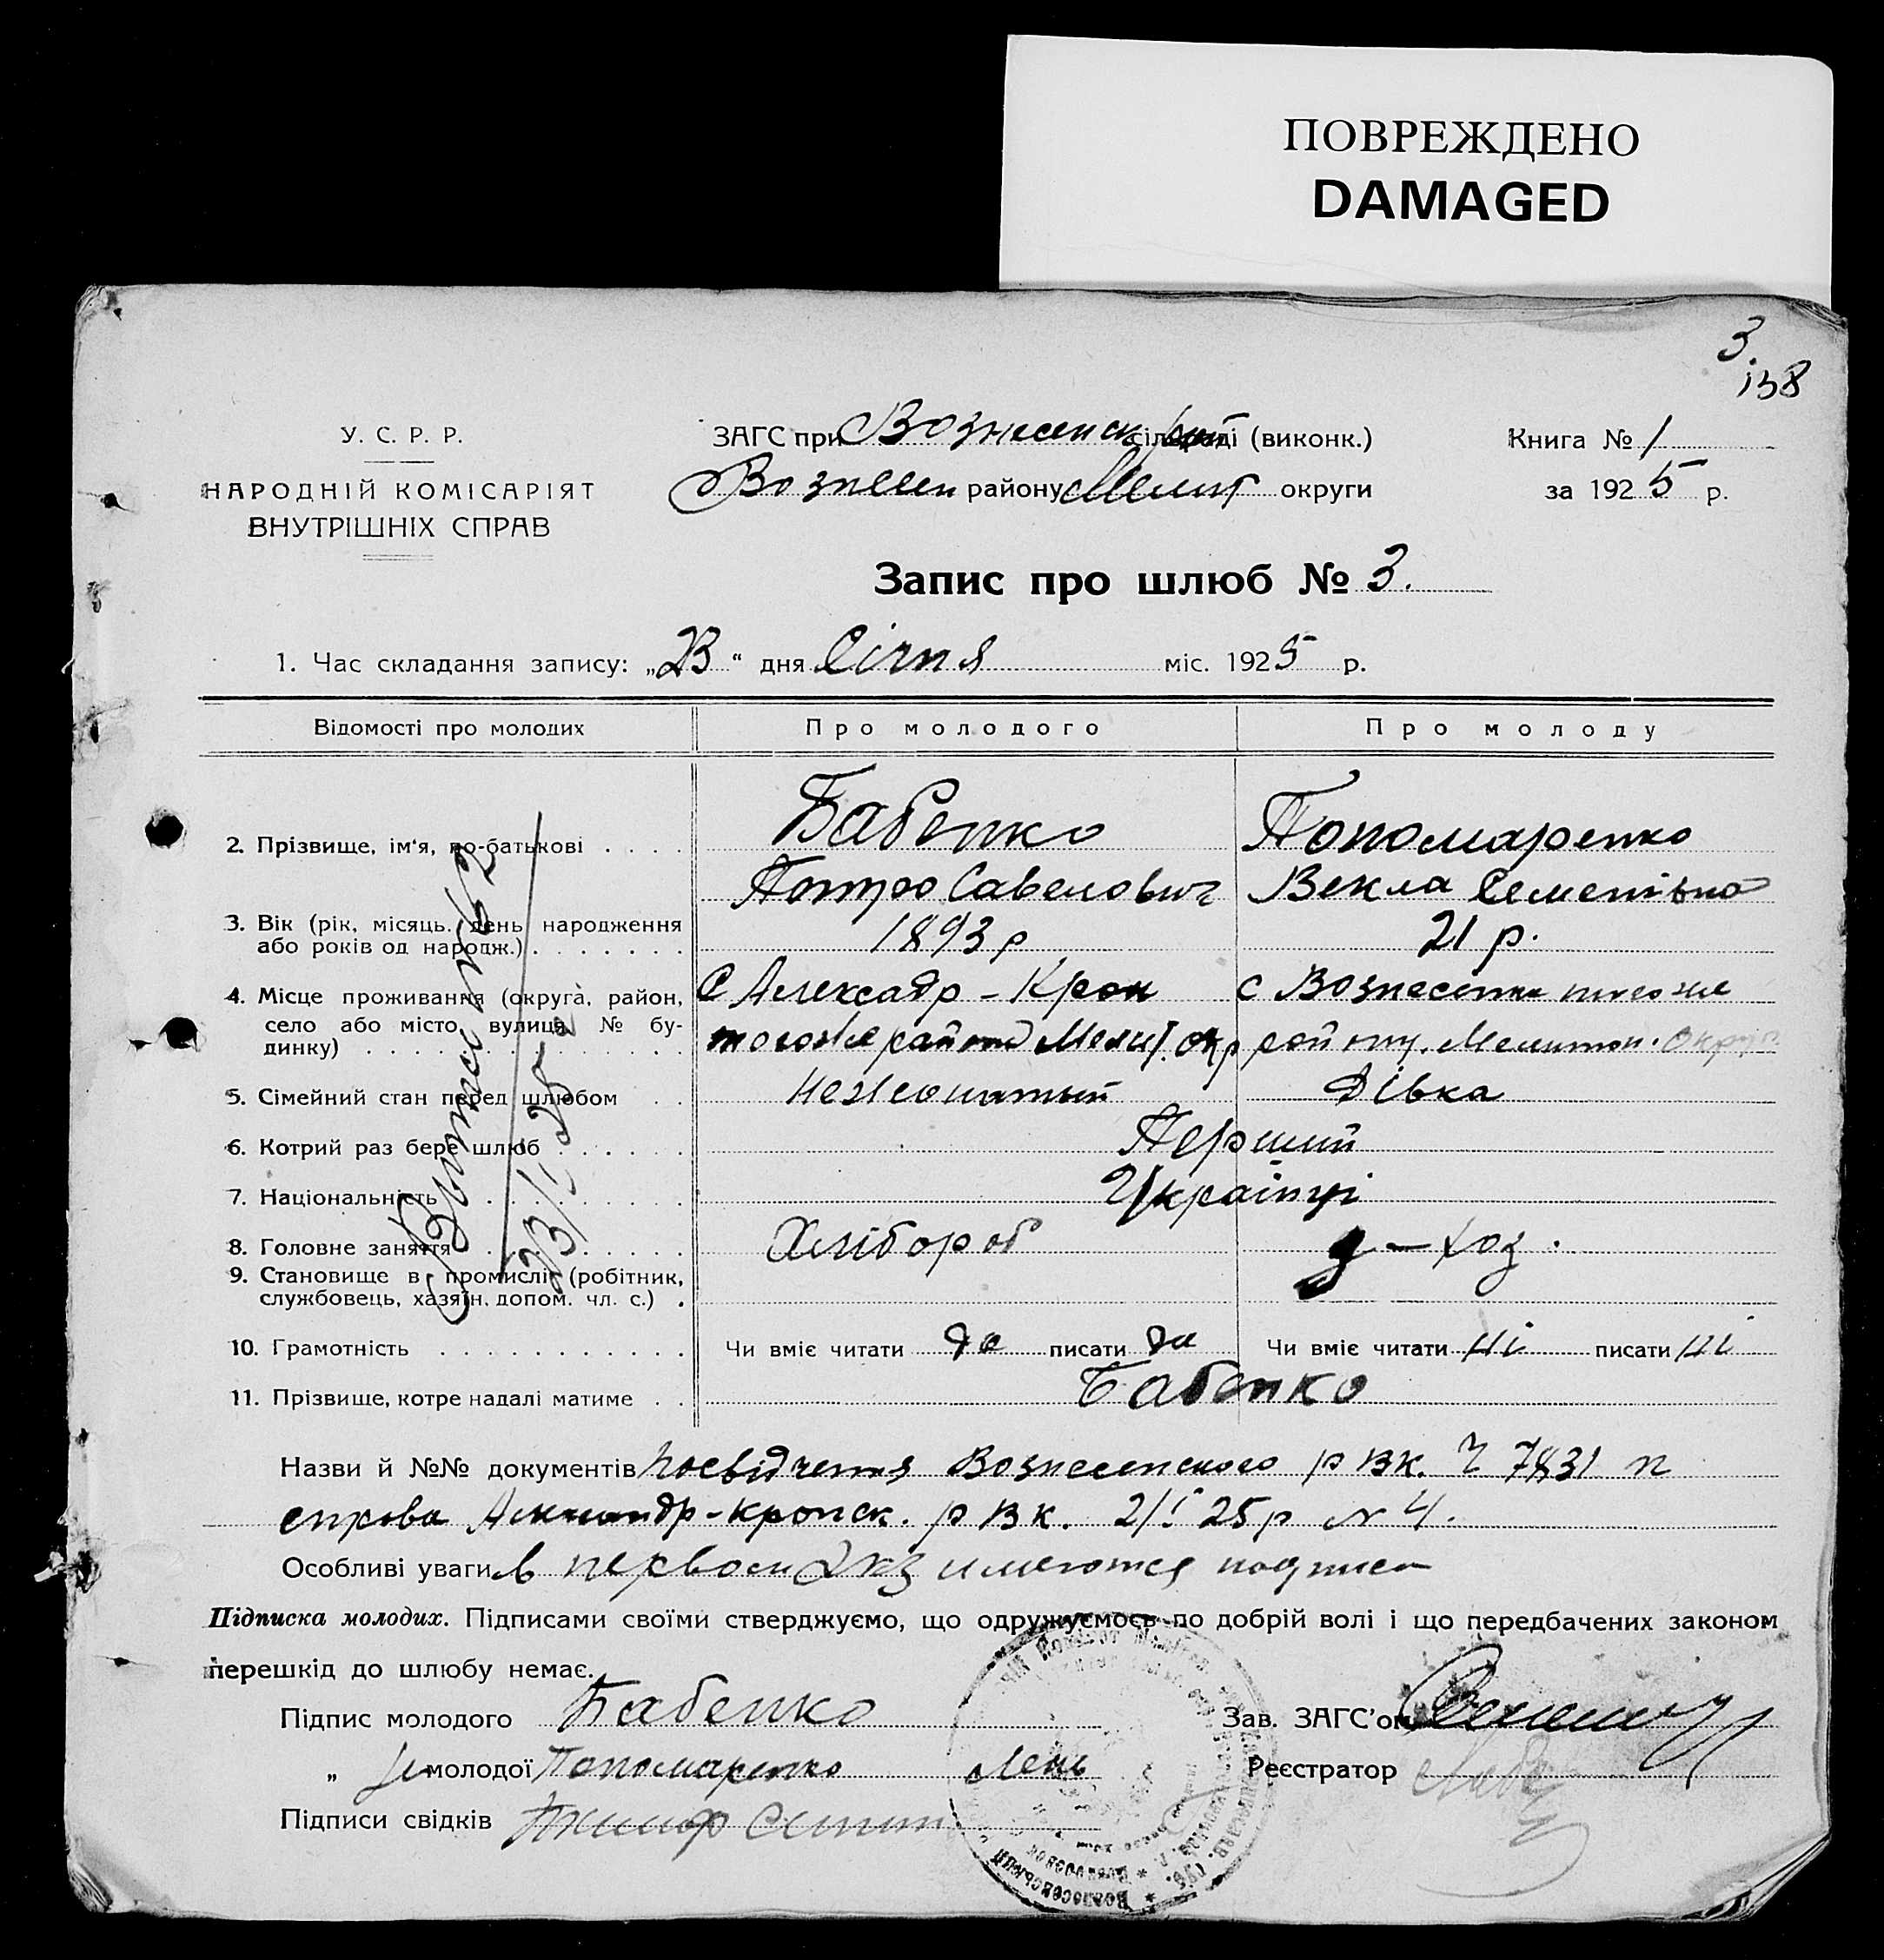 ПОВРЕЖДЕНО
DAMAGED
3.
138
У. С. Р. Р.
НАРОДНІЙ КОМІСАРІЯТ
ВНУТРІШНІХ СПРАВ
ЗАГС при Вознесенск (виконк.)
Вознесен району Мелит округи
Книга № 1
за 1925 р.
Запис про шлюб № 3.
1. Час складання запису: „23“ дня Січня міс. 1925 р.
Відомості про молодих
Про молодого
Про молоду
2. Прізвище, ім'я, по-батькові
Бабенко
Пономаренко
Петро Савелович
Векла Семенівна
3. Вік (рік, місяць, день народження
або років од народж.)
1893 р
21 р.
4. Місце проживання (округа, район,
село або місто, вулиця, № бу-
динку)
с Александр - Крон
с Вознесенка того же
того же району Мелит. окр
району. Мелитоп. округ.
5. Сімейний стан перед шлюбом
Нежонатый
Дівка
6. Котрий раз бере шлюб
Перший
7. Національність
Українці
8. Головне заняття
Хлібороб
д - хоз.
9. Становище в промислі (робітник,
службовець, хазяїн, допом. чл. с.)
10. Грамотність
Чи вміє читати да писати да
Чи вміє читати ні писати ні
11. Прізвище, котре надалі матиме
Бабенко
23/I 25
Назви й №№ документів Посвідчення Вознесенского рвк. 7831
справа Александр-кронск. рвк. 2/I 25р № 4.
Особливі уваги в первом экз имеются подписи
Підписка молодих. Підписами своїми стверджуємо, що одружуємось по добрій волі і що передбачених законом
перешкід до шлюбу немає.
Підпис молодого Бабенко
Зав. ЗАГС'ом
„ молодої Пономаренко
Реєстратор
Підписи свідків